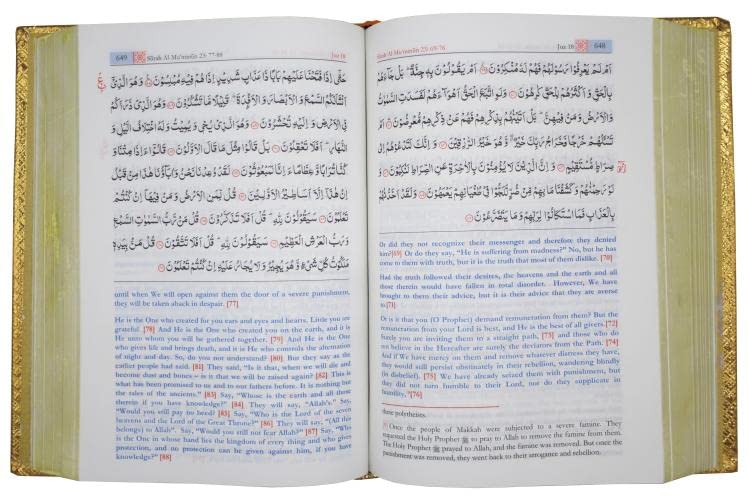 Sūrah Al Mu'minūn 23: 69-76 Juz 18 648
اَمْ لَمْ يَعْرِفُوْا رَسُوْلَهُمْ فَهُمْ لَهٗ مُنْكِرُوْنَ ﴿۶۹﴾ اَمْ يَقُوْلُوْنَ بِهٖ جِنَّةٌ ؕ بَلْ جَآءَهُمْ
بِالْحَقِّ وَ اَكْثَرُهُمْ لِلْحَقِّ كٰرِهُوْنَ ﴿۷۰﴾ وَ لَوِ اتَّبَعَ الْحَقُّ اَهْوَآءَهُمْ لَفَسَدَتِ السَّمٰوٰتُ
وَ الْاَرْضُ وَ مَنْ فِيْهِنَّ ؕ بَلْ اَتَيْنٰهُمْ بِذِكْرِهِمْ فَهُمْ عَنْ ذِكْرِهِمْ مُّعْرِضُوْنَ ﴿۷۱﴾ اَمْ
تَسْـَٔلُهُمْ خَرْجًا فَخَرَاجُ رَبِّكَ خَيْرٌ ۖ وَّ هُوَ خَيْرُ الرّٰزِقِيْنَ ﴿۷۲﴾ وَ اِنَّكَ لَتَدْعُوْهُمْ اِلٰى
صِرَاطٍ مُّسْتَقِيْمٍ ﴿۷۳﴾ وَ اِنَّ الَّذِيْنَ لَا يُؤْمِنُوْنَ بِالْاٰخِرَةِ عَنِ الصِّرَاطِ لَنٰكِبُوْنَ ﴿۷۴﴾ وَ
لَوْ رَحِمْنٰهُمْ وَ كَشَفْنَا مَا بِهِمْ مِّنْ ضُرٍّ لَّلَجُّوْا فِيْ طُغْيَانِهِمْ يَعْمَهُوْنَ ﴿۷۵﴾ وَ لَقَدْ اَخَذْنٰهُمْ
بِالْعَذَابِ فَمَا اسْتَكَانُوْا لِرَبِّهِمْ وَ مَا يَتَضَرَّعُوْنَ ﴿۷۶﴾
Or did they not recognize their messenger and therefore they denied
him?[69] Or do they say, "He is suffering from madness?" No, but he has
come to them with truth, but it is the truth that most of them dislike. [70]
Had the truth followed their desires, the heavens and the earth and all
those therein would have fallen in total disorder. However, We have
brought to them their advice, but it is their advice that they are averse
to.[71]
Or is it that you (O Prophet) demand remuneration from them? But the
remuneration from your Lord is best, and He is the best of all givers.[72]
Surely you are inviting them to a straight path, [73] and those who do
not believe in the Hereafter are surely the deviators from the Path. [74]
And if We have mercy on them and remove whatever distress they have,
they would still persist obstinately in their rebellion, wandering blindly
(in disbelief). [75] We have already seized them with punishment, but
they did not turn humble to their Lord, nor do they supplicate in
humility,*[76]
these polytheists.
Once the people of Makkah were subjected to a severe famine. They
requested the Holy Prophet ﷺ to pray to Allah to remove the famine from them.
The Holy Prophet ﷺ prayed to Allah, and the famine was removed. But once the
punishment was removed, they went back to their arrogance and rebellion.
649 Sūrah Al Mu'minūn 23: 77-88 Juz 18
حَتّٰٓى اِذَا فَتَحْنَا عَلَيْهِمْ بَابًا ذَا عَذَابٍ شَدِيْدٍ اِذَا هُمْ فِيْهِ مُبْلِسُوْنَ ﴿۷۷﴾ وَ هُوَ الَّذِيْٓ
اَنْشَاَ لَكُمُ السَّمْعَ وَ الْاَبْصَارَ وَ الْاَفْـِٕدَةَ ؕ قَلِيْلًا مَّا تَشْكُرُوْنَ ﴿۷۸﴾ وَ هُوَ الَّذِيْ ذَرَاَكُمْ
فِي الْاَرْضِ وَ اِلَيْهِ تُحْشَرُوْنَ ﴿۷۹﴾ وَ هُوَ الَّذِيْ يُحْيٖ وَ يُمِيْتُ وَ لَهُ اخْتِلَافُ الَّيْلِ وَ
النَّهَارِ ؕ اَفَلَا تَعْقِلُوْنَ ﴿۸۰﴾ بَلْ قَالُوْا مِثْلَ مَا قَالَ الْاَوَّلُوْنَ ﴿۸۱﴾ قَالُوْٓا ءَاِذَا مِتْنَا وَ
كُنَّا تُرَابًا وَّ عِظَامًا ءَاِنَّا لَمَبْعُوْثُوْنَ ﴿۸۲﴾ لَقَدْ وُعِدْنَا نَحْنُ وَ اٰبَآؤُنَا هٰذَا مِنْ قَبْلُ
اِنْ هٰذَآ اِلَّآ اَسَاطِيْرُ الْاَوَّلِيْنَ ﴿۸۳﴾ قُلْ لِّمَنِ الْاَرْضُ وَ مَنْ فِيْهَآ اِنْ كُنْتُمْ
تَعْلَمُوْنَ ﴿۸۴﴾ سَيَقُوْلُوْنَ لِلّٰهِ ؕ قُلْ اَفَلَا تَذَكَّرُوْنَ ﴿۸۵﴾ قُلْ مَنْ رَّبُّ السَّمٰوٰتِ السَّبْعِ
وَ رَبُّ الْعَرْشِ الْعَظِيْمِ ﴿۸۶﴾ سَيَقُوْلُوْنَ لِلّٰهِ ؕ قُلْ اَفَلَا تَتَّقُوْنَ ﴿۸۷﴾ قُلْ مَنْۢ بِيَدِهٖ
مَلَكُوْتُ كُلِّ شَيْءٍ وَّ هُوَ يُجِيْرُ وَ لَا يُجَارُ عَلَيْهِ اِنْ كُنْتُمْ تَعْلَمُوْنَ ﴿۸۸﴾
until when We will open against them the door of a severe punishment,
they will be taken aback in despair. [77]
He is the One who created for you ears and eyes and hearts. Little you are
grateful. [78] And He is the One who created you on the earth, and it is
He unto whom you will be gathered together. [79] And He is the One
who gives life and brings death, and it is He who controls the alternation
of night and day. So, do you not understand? [80] But they say as the
earlier people had said. [81] They said, "Is it that, when we will die and
become dust and bones – is it that we will be raised again? [82] This is
what has been promised to us and to our fathers before. It is nothing but
the tales of the ancients." [83] Say, "Whose is the earth and all those
therein if you have knowledge?" [84] They will say, "Allah's." Say,
"Would you still pay no heed? [85] Say, "Who is the Lord of the seven
heavens and the Lord of the Great Throne?" [86] They will say, "(All this
belongs) to Allah". Say, "Would you still not fear Allah?" [87] Say, "Who
is the One in whose hand lies the kingdom of every thing and who gives
protection, and no protection can be given against him, if you have
knowledge?" [88]